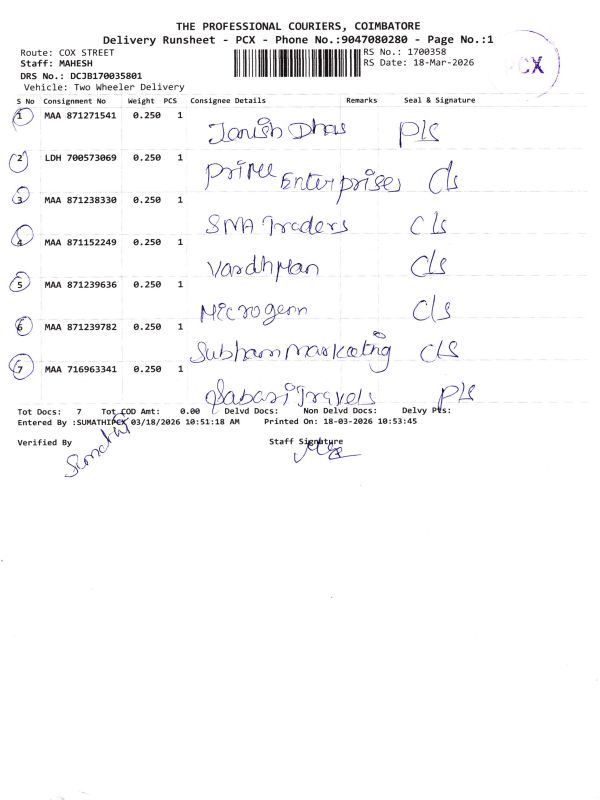 THE PROFESSIONAL COURIERS, COIMBATORE
Delivery Runsheet - PCX - Phone No.:9047080280 - Page No.:1
Route: COX STREET RS No.: 1700358
Staff: MAHESH RS Date: 18-Mar-2026
DRS No.: DCJB170035801
Vehicle: Two Wheeler Delivery
PCX
S No Consignment No Weight PCS Consignee Details Remarks Seal & Signature
1 MAA 871271541 0.250 1
Janish Dhas P/s
2 LDH 700573069 0.250 1
Prime Enterprises C/s
3 MAA 871238330 0.250 1
SMA Traders C/s
4 MAA 871152249 0.250 1
Vardhman C/s
5 MAA 871239636 0.250 1
Microgenn C/s
6 MAA 871239782 0.250 1
Subham Markeeting C/s
7 MAA 716963341 0.250 1
Sabari Travels P/s
Tot Docs: 7 Tot COD Amt: 0.00 Delvd Docs: Non Delvd Docs: Delvy Pts:
Entered By :SUMATHIPCX 03/18/2026 10:51:18 AM Printed On: 18-03-2026 10:53:45
Verified By Staff Signature
Sumathi